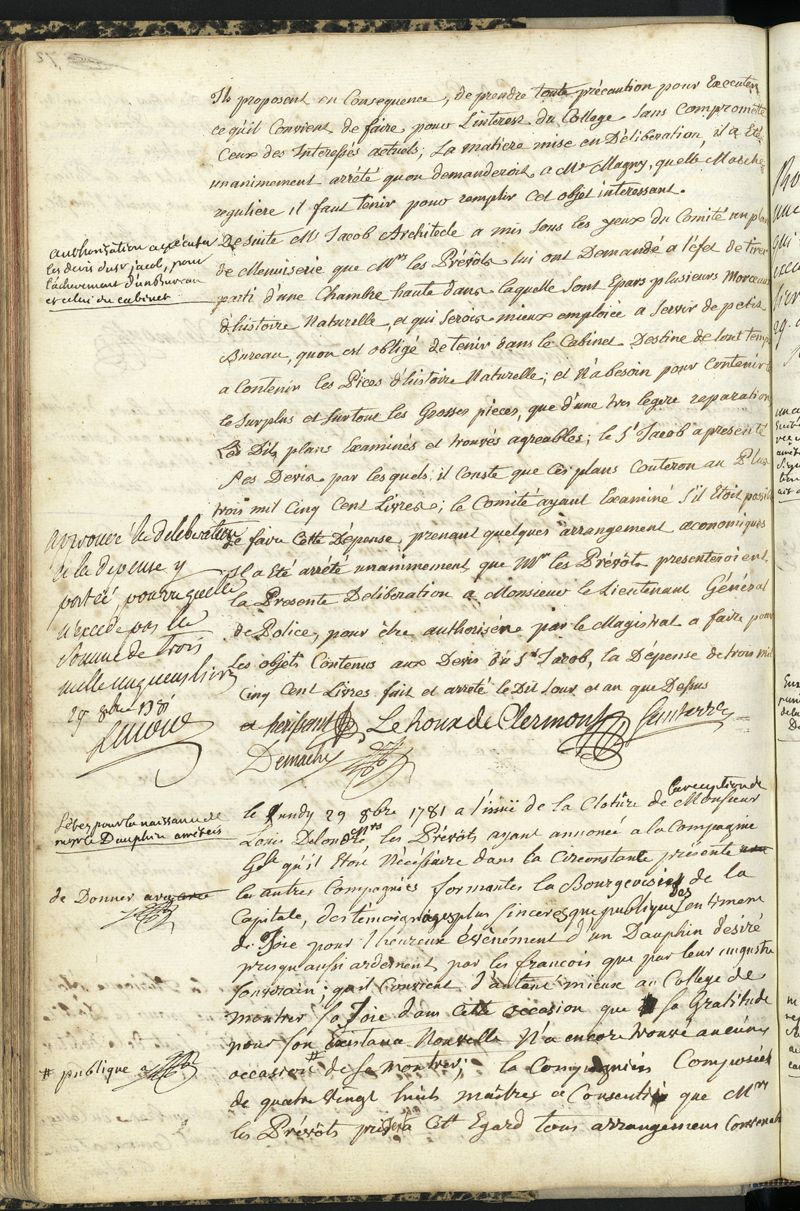 Ils proposent en Consequence, de prendre toute précaution pour Executer
ce qu'il Convient de faire pour L'interest du College sans compromettre
Ceux des Interessés actuels; La matiere mise en Délibération, il a Eté
unanimement arrété qu'on demanderoit a Mr Magny, quelle Marche
reguliere il faut tenir pour remplir Cet objet interessant.
authorisation a executer
les devis du sr jacob, pour
l'achevement d'un Bureau
et celui du cabinet
De suite Mr Jacob Architecte a mis sous les yeux du Comité un plan
de Menuiserie que Mrs les Prévôts lui ont Demandé a l'éfet de tirer
parti d'une Chambre haute dans laquelle sont Epars plusieurs Morceaux
d'histoire Naturelle, et qui seroit mieux emploiée a servir de petit
Bureau, qu'on est obligé de tenir dans le Cabinet Destiné de tout temps
a Contenir les Pices d'histoire Naturelle; et N'a besoin pour Contenir
le surplus et surtout les Grosses pieces, que d'une tres légere reparation
Les Dits plans Examinés et trouvés agreables; le Sr Jacob a presenté
Ses Devis par lesquels il Conste que Ces plans Couteron au Plus
trois mil Cinq Cent Livres; le Comité ayant Examiné s'il Etoit possible
de faire Cette Dépense, prenant quelques arrangement œconomiques
Il a Eté arrété unanimement que Mrs les Prévôts presenteroient
la Presente Deliberation a Monsieur le Lieutenant Général
de Police, pour être authorisée par le Magistrat a faire pour
Les objets Contenus aux Devis du Sr Jacob, la Dépense de trois mil
Cinq Cent Livres fait et arrété le Dit Jour et an que Dessus
approuvé la deliberation
et la depense y
portée, pourvu quelle
n'excede pas la
somme de trois
mille cinq cens livres
29 8bre 1781
Lenoir
herissant Le houx de Clermont Santerre
Demachy
fêtes pour la naissance de
mgr le Dauphin arrêtées
le Lundy 29 8bre 1781 a l'issuë de la Cloture de la reception de Monsieur
Louis Delondre, Mrs les Prévôts ayant annoncé a la Compagnie
qu'il Etoit Nécessaire dans la Circonstance présente
de Donner
les autres Compagnies formantes la Bourgeoisie de la
Capitale, des témoignages plus sinceres que publique des sentiment
de Joie pour l'heureux évènement d'un Dauphin désiré
presqu'aussi ardemment par les francois que par leur auguste
souverain; qu'il Convient d'autant mieux au College de
montrer sa Joie dans Cette occasion que sa Gratitude
pour son Existance Nouvelle N'a encore trouvé aucune
# publique
occasion # de se montrer; la Compagnie Composée
de quatre Vingt huit maîtres a Consenti que Mrs
les Prévôts prissent a Cet Egard tous arrangemens Convenable